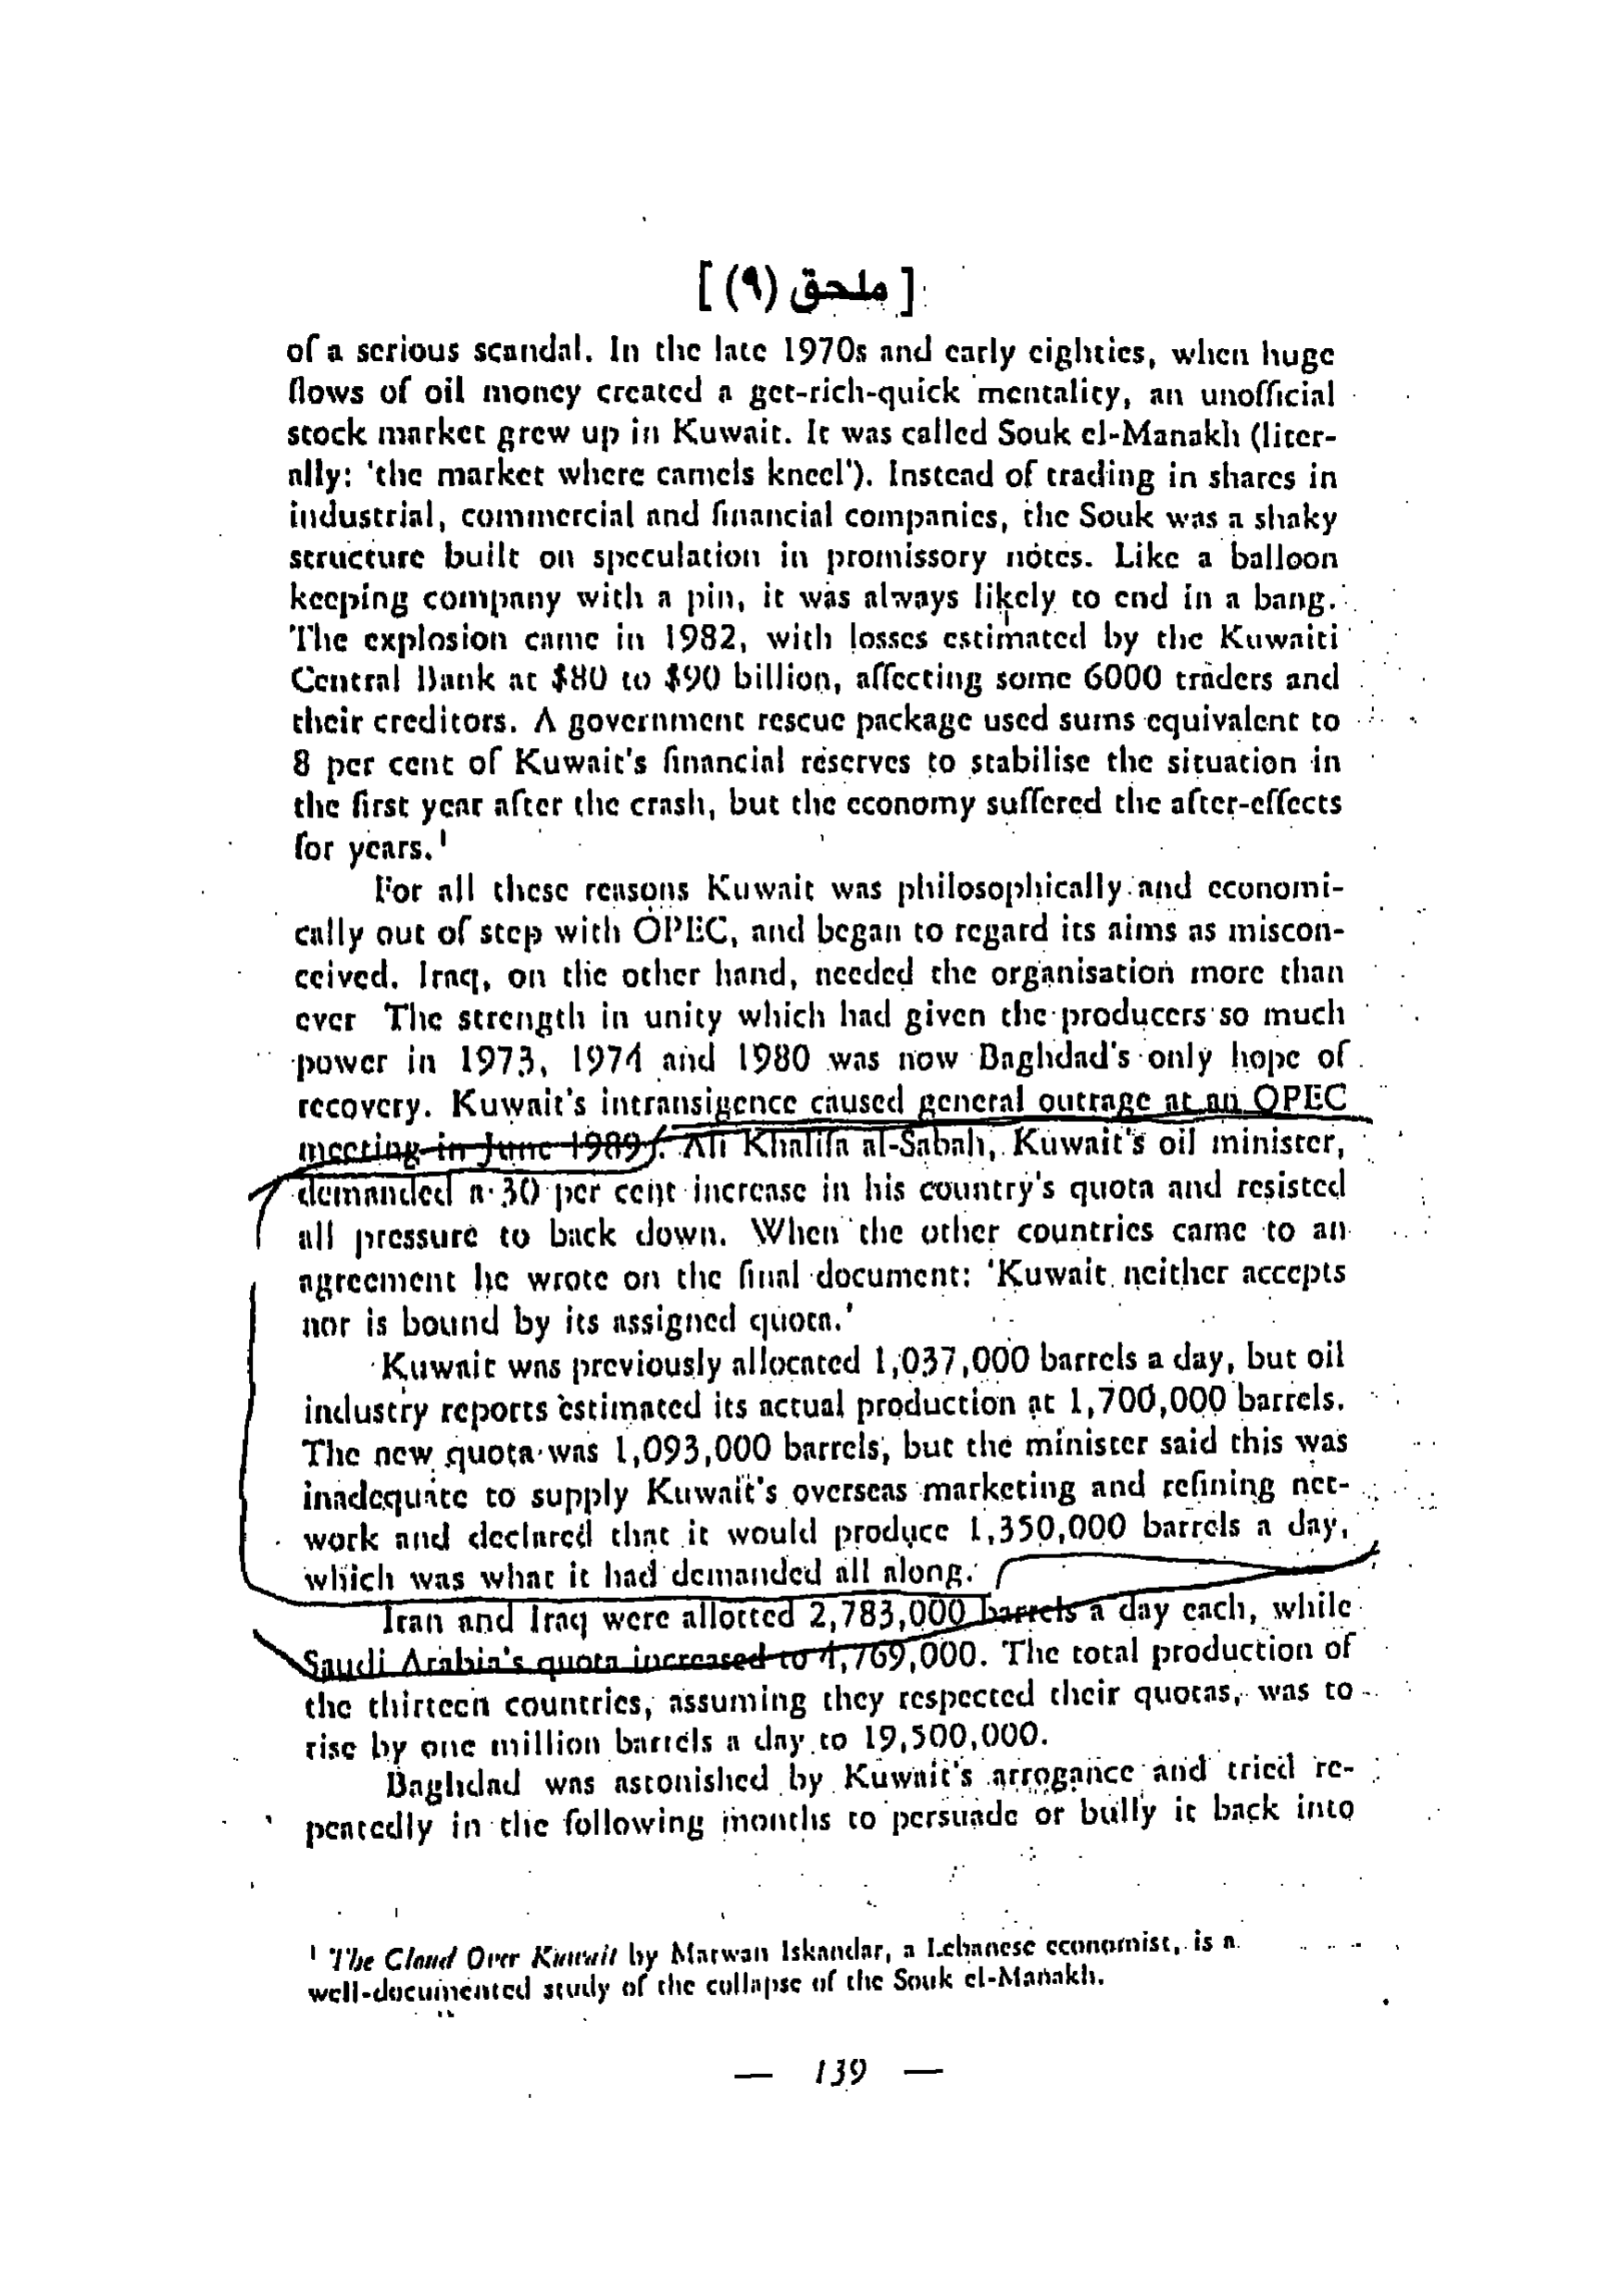 [ ملحق (٩) ]
of a serious scandal. In the late 1970s and early eighties, when huge
flows of oil money created a get-rich-quick mentality, an unofficial
stock market grew up in Kuwait. It was called Souk el-Manakh (liter-
ally: 'the market where camels kneel'). Instead of trading in shares in
industrial, commercial and financial companies, the Souk was a shaky
structure built on speculation in promissory notes. Like a balloon
keeping company with a pin, it was always likely to end in a bang.
The explosion came in 1982, with losses estimated by the Kuwaiti
Central Bank at $80 to $90 billion, affecting some 6000 traders and
their creditors. A government rescue package used sums equivalent to
8 per cent of Kuwait's financial reserves to stabilise the situation in
the first year after the crash, but the economy suffered the after-effects
for years.¹
For all these reasons Kuwait was philosophically and economi-
cally out of step with OPEC, and began to regard its aims as miscon-
ceived. Iraq, on the other hand, needed the organisation more than
ever The strength in unity which had given the producers so much
power in 1973, 1974 and 1980 was now Baghdad's only hope of
recovery. Kuwait's intransigence caused general outrage at an OPEC
meeting in June 1989. Ali Khalifa al-Sabah, Kuwait's oil minister,
demanded a 30 per cent increase in his country's quota and resisted
all pressure to back down. When the other countries came to an
agreement he wrote on the final document: 'Kuwait neither accepts
nor is bound by its assigned quota.'
Kuwait was previously allocated 1,037,000 barrels a day, but oil
industry reports estimated its actual production at 1,700,000 barrels.
The new quota was 1,093,000 barrels, but the minister said this was
inadequate to supply Kuwait's overseas marketing and refining net-
work and declared that it would produce 1,350,000 barrels a day,
which was what it had demanded all along.
Iran and Iraq were allotted 2,783,000 barrels a day each, while
Saudi Arabia's quota increased to 4,769,000. The total production of
the thirteen countries, assuming they respected their quotas, was to
rise by one million barrels a day to 19,500,000.
Baghdad was astonished by Kuwait's arrogance and tried re-
peatedly in the following months to persuade or bully it back into
¹ The Cloud Over Kuwait by Marwan Iskandar, a Lebanese economist, is a
well-documented study of the collapse of the Souk el-Manakh.
— 139 —